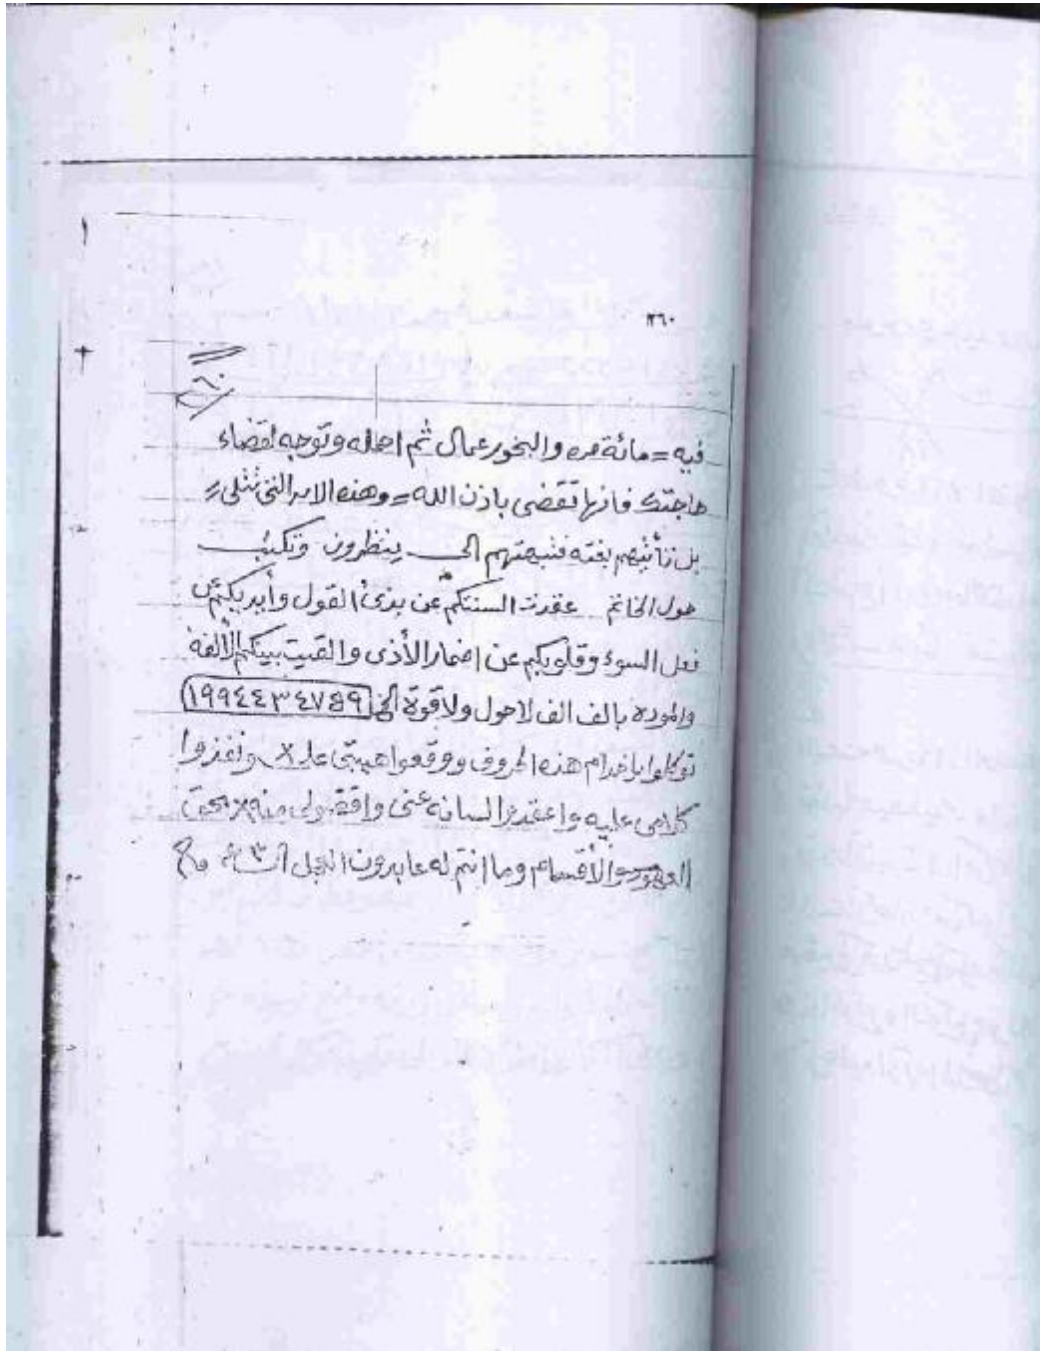 ٣٦٠
٦٠
فيه = مائة مره والبخور عمال ثم احمله وتوجه لقضاء
حاجتك فانها تقضى باذن الله = وهذه الايه التى تتلى =
بل تأتيهم بغته فتبهتهم الى ينظرون وتكتب
حول الخاتم عقدت السنتكم عن بذئ القول وأيديكم عن
فعل السوء وقلوبكم عن اضمار الأذى والقيت بينكم الألفة
والموده بالف الف لاحول ولاقوة الخ
توكلوا ياخدام هذه الحروف ووقعوا هيبتى على ونفذوا
كلامى عليه واعقدوا لسانه عنى منه بحق
العهود والأقسام وما انتم له عابدون العجل